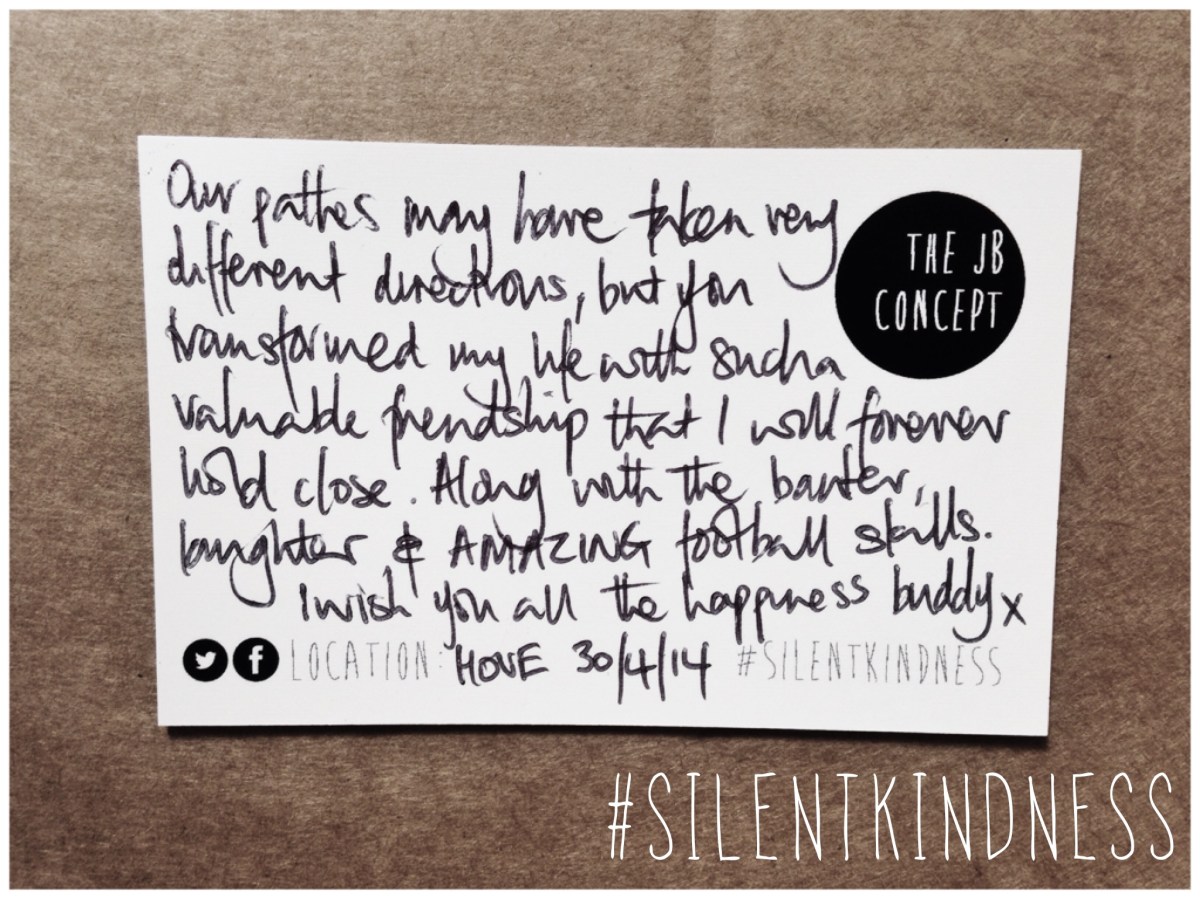 Our pathes may have taken very
different directions, but you
transformed my life with such a
valuable friendship that I will forever
hold close. Along with the banter,
laughter & AMAZING football skills.
I wish you all the happiness buddy x
THE JB
CONCEPT
LOCATION: HOVE 30/4/14 #SILENTKINDNESS
#SILENTKINDNESS